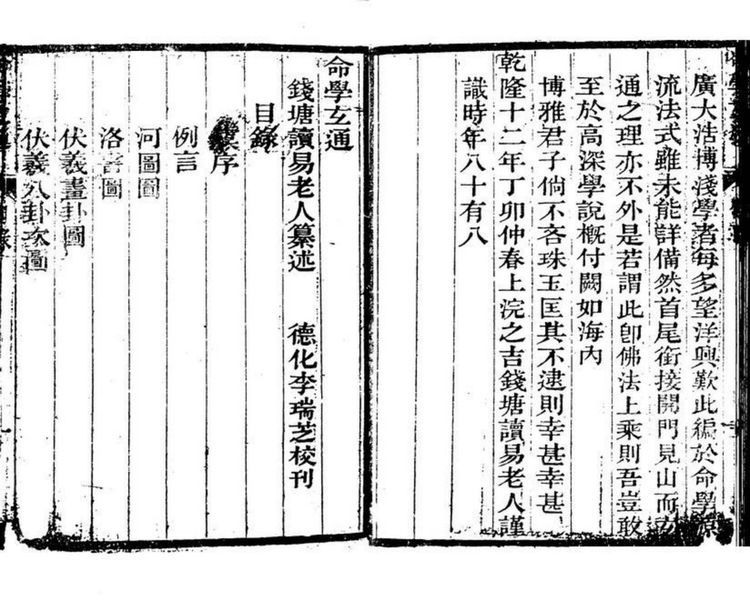 廣大浩博淺學者每多望洋興歎此編於命學源
流法式雖未能詳備然首尾銜接開門見山而玄
通之理亦不外是若謂此卽佛法上乘則吾豈敢
至於高深學說概付闕如海內
博雅君子倘不吝珠玉匡其不逮則幸甚幸甚
乾隆十二年丁卯仲春上浣之吉錢塘讀易老人謹
識時年八十有八
命學玄通
錢塘讀易老人纂述 德化李瑞芝校刊
目錄
序
例言
河圖圖
洛書圖
伏羲畫卦圖
伏羲八卦次圖